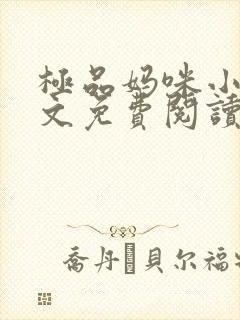 極品妈咪小
文免費閱讀
喬丹·貝尔福